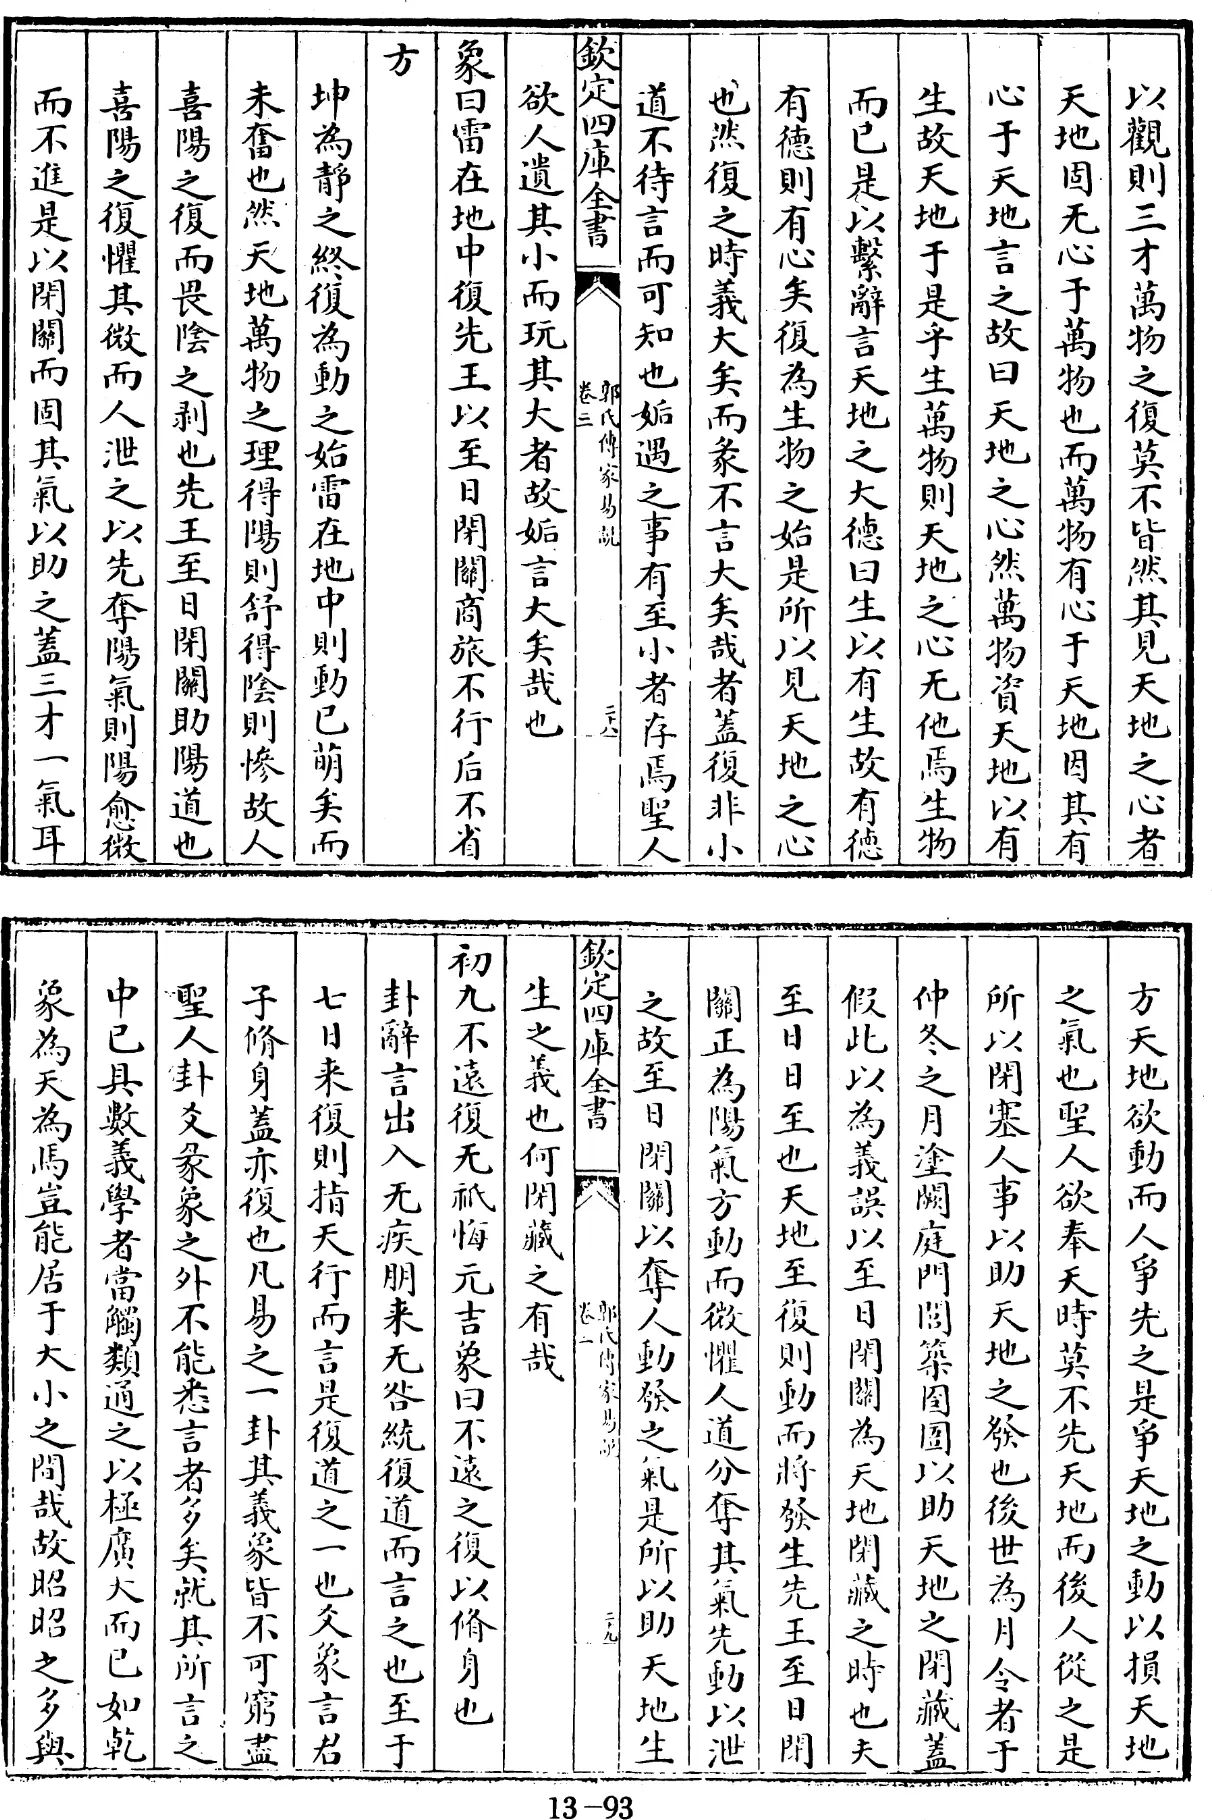 以觀則三才萬物之復莫不皆然其見天地之心者
天地固无心于萬物也而萬物有心于天地因其有
心于天地言之故曰天地之心然萬物資天地以有
生故天地于是乎生萬物則天地之心无他焉生物
而已是以繫辭言天地之大德曰生以有生故有德
有德則有心矣復為生物之始是所以見天地之心
也然復之時義大矣而彖不言大矣哉者蓋復非小
道不待言而可知也姤遇之事有至小者存焉聖人
欽定四庫全書
郭氏傳家易說
卷三
二十八
欲人遺其小而玩其大者故姤言大矣哉也
象曰雷在地中復先王以至日閉關商旅不行后不省
方
坤為靜之終復為動之始雷在地中則動已萌矣而
未奮也然天地萬物之理得陽則舒得陰則慘故人
喜陽之復而畏陰之剥也先王至日閉關助陽道也
喜陽之復懼其微而人泄之以先奪陽氣則陽愈微
而不進是以閉關而固其氣以助之蓋三才一氣耳
方天地欲動而人爭先之是爭天地之動以損天地
之氣也聖人欲奉天時莫不先天地而後人從之是
所以閉塞人事以助天地之發也後世為月令者于
仲冬之月塗闕庭門閭築囹圄以助天地之閉藏蓋
假此以為義誤以至日閉關為天地閉藏之時也夫
至日日至也天地至復則動而將發生先王至日閉
關正為陽氣方動而微懼人道分奪其氣先動以泄
之故至日閉關以奪人動發之氣是所以助天地生
欽定四庫全書
郭氏傳家易說
二十九
生之義也何閉藏之有哉
初九不遠復无祗悔元吉象曰不遠之復以脩身也
卦辭言出入无疾朋来无咎統復道而言之也至于
七日来復則指天行而言是復道之一也爻象言君
子脩身蓋亦復也凡易之一卦其義象皆不可窮盡
聖人卦爻彖象之外不能悉言者多矣就其所言之
中已具數義學者當觸類通之以極廣大而已如乾
象為天為馬豈能居于大小之間哉故昭昭之多與
13-93